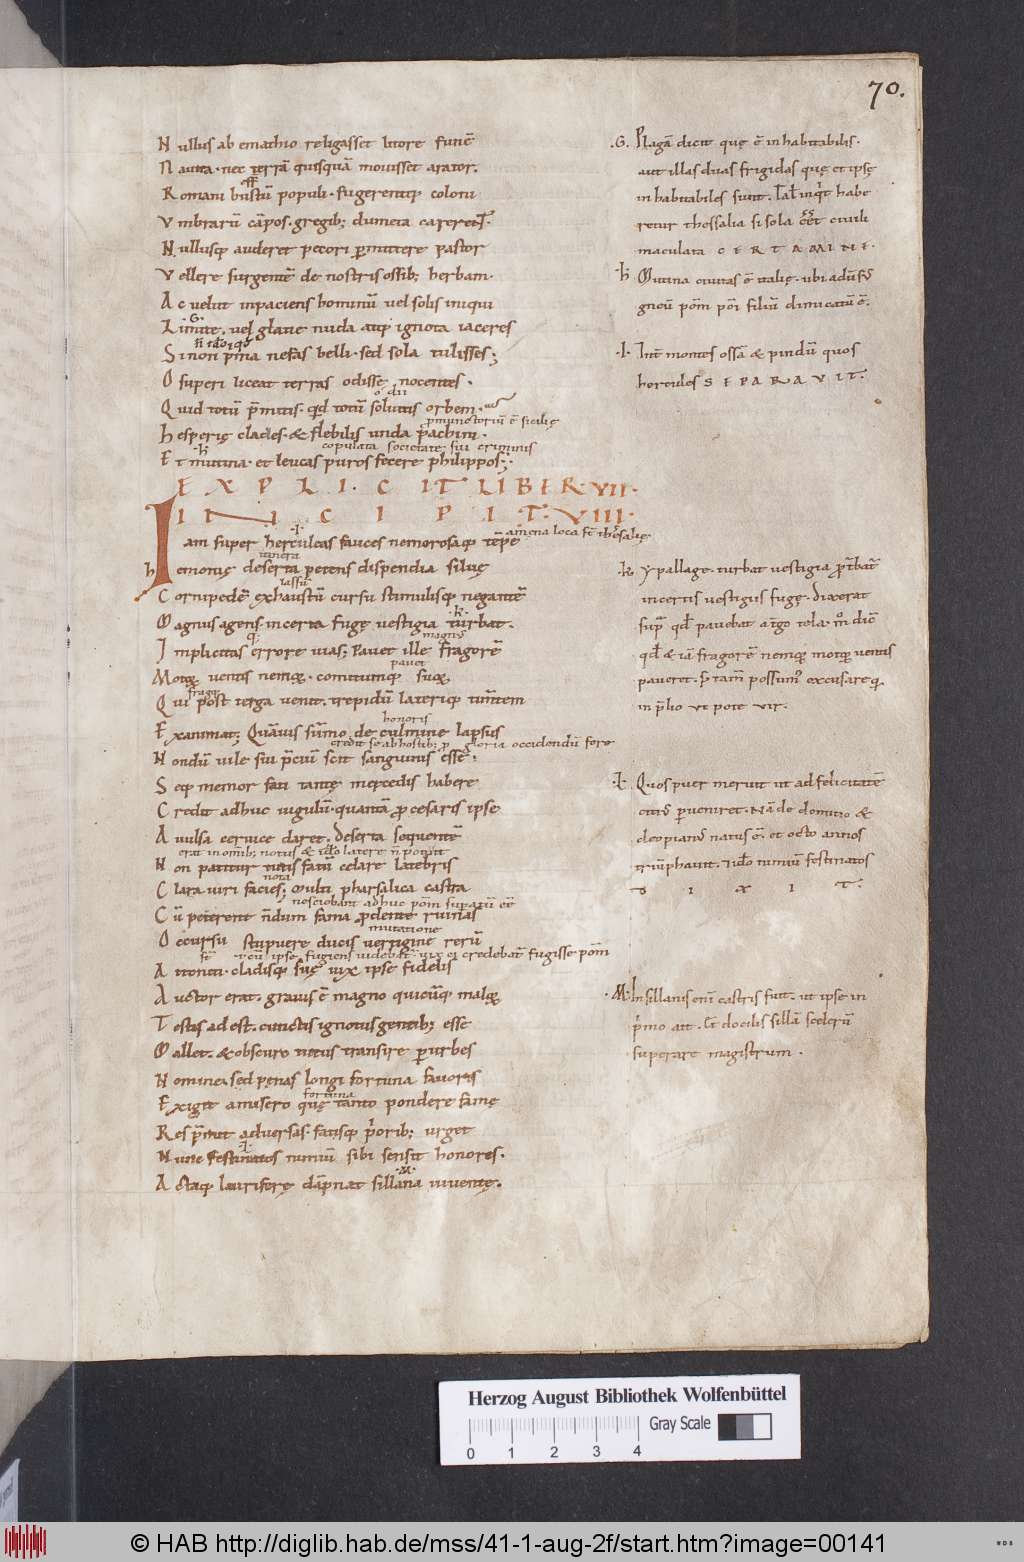 70.
Nullus ab emathio religasset litore funē
Nauita· nec terrā quisquā mouisset arator.
Romani bustū populi· fugerentq; coloni
Vmbrarū cāpos. gregib; dumeta carerent.
Nullusq; auderet pecori pmittere pastor
Vellere surgentē de nostris ossib; herbam·
Ac velut inpaciens hominū uel solis iniqui
.G.
Limite. uel glacie nuda atq; ignota iaceres
Si non prima nefas belli· sed sola tulisses;
O superi liceat terras odisse nocentes.
o dii
Quid totū p̄mitis· qd totū soluitis orbem·
pmunctoriū ē sicilię
Hesperię clades· & flebilis unda pachini·
·h· copulata societate sui criminis
Et mutina· et leucas puros fecere philippos;·
EXPLICIT LIBER·VII·
INCIPIT·VIII·
·I· amena loca st̄ thesalię
Iam super herculeas fauces nemorosaq; tēpe
itinera
hemonię deserta petens dispendia siluę
lassū
Cornipedē exhaustū cursu stimulisq; negantē
·k·
Magnus agens· incerta fugę vestigia turbat.
magnus
Implicitas errore uias; Pauet ille fragorē
pauet
Motoꝝ uentis nemoꝝ· comitumq; suoꝝ
fragor
Qui post terga uenit. trepidū lateriq; timētem
honoris
Exanimat; Quāuis sūmo de culmine lapsus
credit se ab hostib; p gloria occidendū fore
Nondū uile sui p̄ciū scit sanguinis esse·
Seq; memor fati tantę mercedis habere
Credit adhuc iugulū· quantā p cesaris ipse
Auulsa ceruice daret. deserta sequentē
erat in omīb; notus & ido latere n̄ potuit
Non patitur tutis fatū celare latebris
nota
Clara uiri facies; Multi pharsalica castra
nesciebant adhuc pom̄ supatū eē
Cū peterent n̄dum fama pdente ruinas
mutatione
Occursu stupuere ducis uertigine rerū
Attoniti· cladisq; suę uix ipse fidelis
Auctor erat. grauis ē magno quicūq; maloꝝ
Testis adest. cunctis ignotus gentib; esse
Mallet. & obscuro tutus transire p urbes
Nomine· sed pęnas longi fortuna fauoris
fortuna
Exigit a misero quę tanto pondere famę
Res p̄mit aduersas· fatisq; priorib; urget
·L·
Nunc festinatos nimiū sibi sensit honores.
·M·
Actaq; lauriferę dāpnat sillana iuuentę.
.G. Plagā dicit quę ē inhabitabilis·
aut illas duas frigidas quę et ipsę
inhabitabiles sunt. habe
retur thessalia si sola eēt ciuili
maculata CERTAMINE.
·h· Mutina ciuitas ē italię· ubi
pom̄ filiū dimicatū ē.
·I· Int̄ montes ossā & pindū quos
hercules SEPARAVIT.
·k· Ypallage. turbat uestigia p
incertis uestigiis fugę. dixerat
supra qd pauebat
qd & iā fragorē nemoꝝ motoꝝ uentis
paueret. possum' excusare
in plio ut pote vir.
·L· Quos puer meruit ut ad felicitatē
p ueniret. Nā de domitio &
natus ē. et octo annos
triūphauit. ido nimiū festinatos
DIXIT.
·M· In sillanis eni castris fuit. ut ipse in
primo ait. Et docilis sillā scelerū
superare magistrum.
Herzog August Bibliothek Wolfenbüttel
Gray Scale
0 1 2 3 4
© HAB http://diglib.hab.de/mss/41-1-aug-2f/start.htm?image=00141